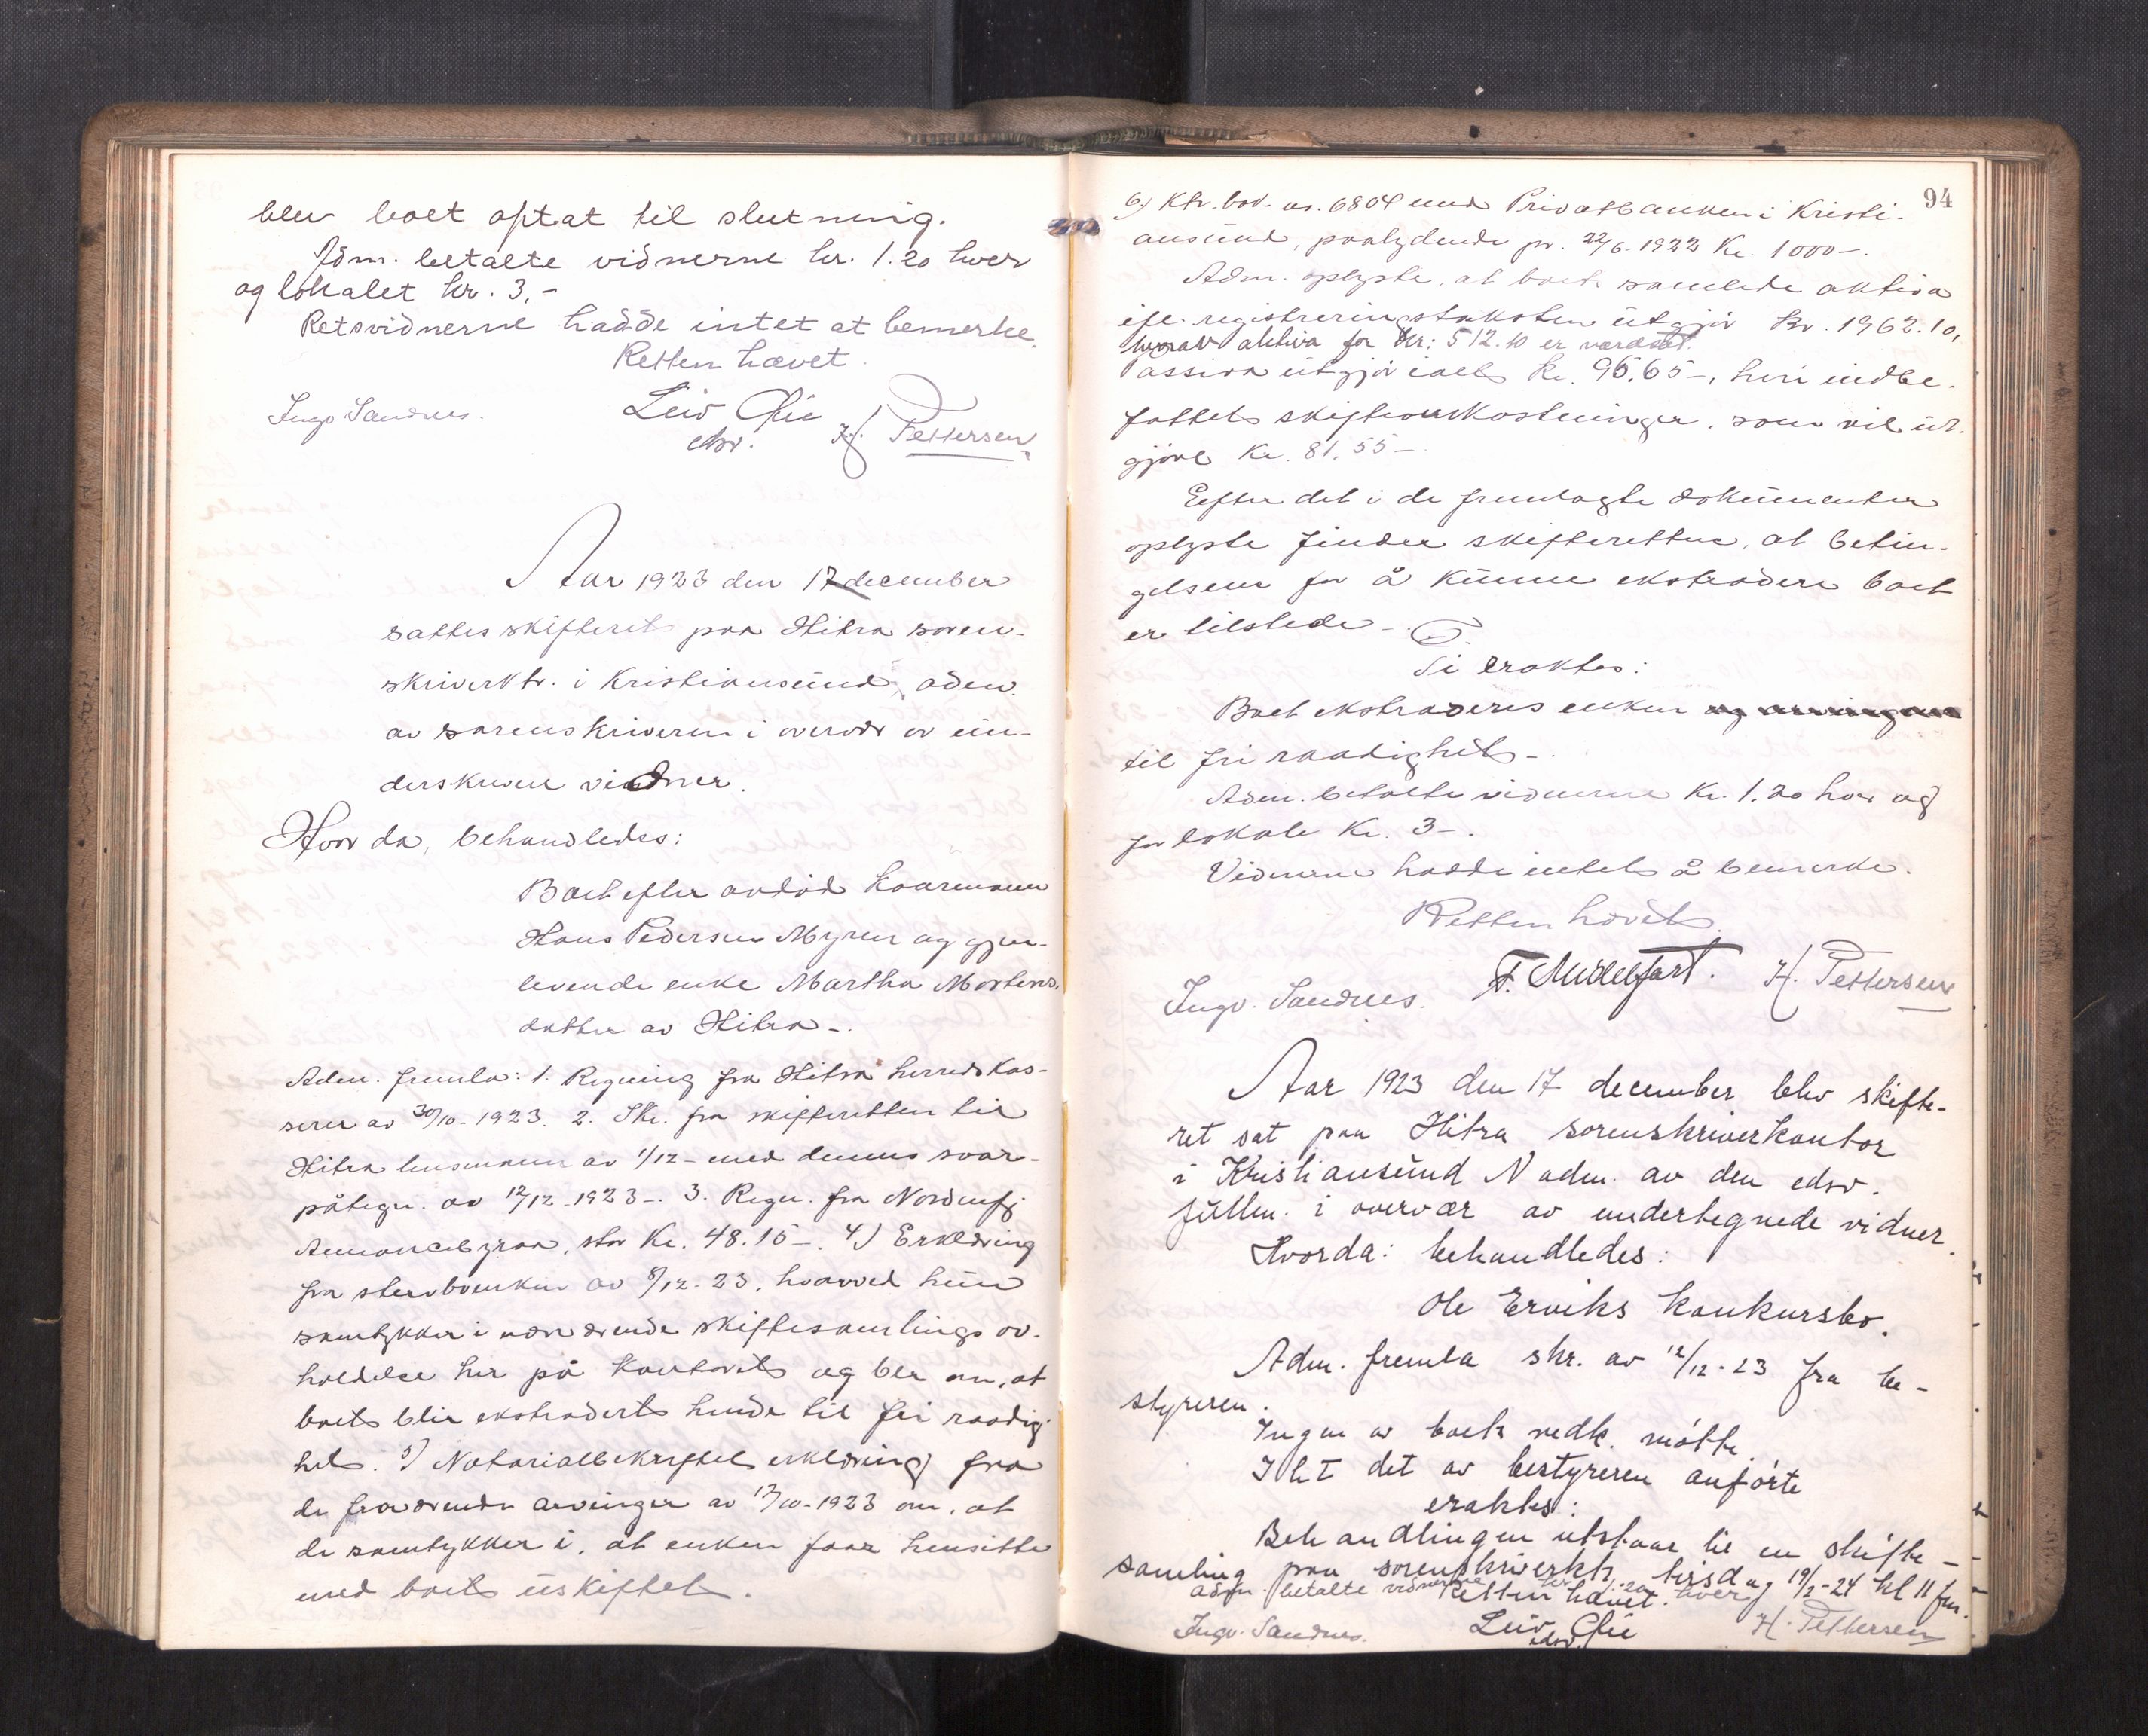 blev boet optat til slutning.
Adm. betalte vidnerne kr. 1.20 hver
og lokalet kr. 3,-
Retsvidnerne hadde intet at bemerke.
Retten hævet.
Ingv Sandnes.
Leiv
edsv.
H. Pettersen
Aar 1923 den 17 december
sattes skifteret paa Hitra soren-
skriverktr. i Kristiansund, adm.
av sorenskriveren i overvær av un-
derskrevne vidner.
Hvor da, behandledes:
Boet efter avdød kaarmann
Hans Pedersen Myren og gjen-
levende enke Martha Mortens-
datter av Hitra -.
Adm. fremla: 1. Regning fra Hitra herredskas-
serer av 30/10-1923. 2. Skr. fra skifteretten til
Hitra lensmann av 1/12- med dennes svar-
påtegn. av 12/12-1923-. 3. Regn. fra Nordenfj
Annoncebyraa, stor Kr. 48.15-. 4) Erklæring
fra stervboenken av 8/12-23, hvorved hun
samtykker i nærværende skiftesamlings av-
holdelse her på kontoret og ber om, at
boet blir ekstradert hende til fri raadig-
het. 5) Notarialbekreftet erklæring fra
de fraværende arvinger av 17/10-1923 om, at
de samtykker i, at enken faar hensitte
med boet uskiftet.
94
6) Ktr. bok. nr. 6804 med Privatbanken i Kristi-
ansund, paalydende pr. 22/6-1922 Kr. 1000-.
Adm. oplyste, at boets samlede aktiva
efr. registreringstaksten utgjør Kr. 1962.10,
hvorav aktiva for kr: 512.10 er værdsat.
Passiva utgjør ialt Kr. 96.65-, heri indbe-
fattet skifteomkostninger, som vil ut-
gjøre Kr. 81.55-
Efter det i de fremlagte dokumenter
oplyste finder skifteretten, at betin-
gelsene for å kunne ekstradere boet
er tilstede -.
Ti eraktes:
Boet ekstraderes enken
til fri raadighet-.
Adm. betalte vidnerne Kr. 1.20 hver og
for lokale Kr. 3-.
Vidnerne hadde intet å bemerke.
Retten hævet.
Ingv. Sandnes.
F. Middelfart.
H. Pettersen
Aar 1923 den 17 december blev skifte-
ret sat paa Hitra sorenskriverkontor
i Kristiansund N adm. av den edsv.
fullm. i overvær av undertegnede vidner.
Hvorda: behandledes:
Ole Erviks konkursbo.
Adm. fremla skr. av 12/12-23 fra be-
styreren.
Ingen av boets vedk. møtte.
I h t det av bestyreren anførte
eraktes:
Behandlingen utstaar til en skifte-
samling paa sorenskriverktr. tirsdag 19/2-24 kl 11 fm.
adm. betalte vidnerne kr 1.20 hver
Retten hævet.
Ingv. Sandnes.
Leiv
edsv.
H. Pettersen